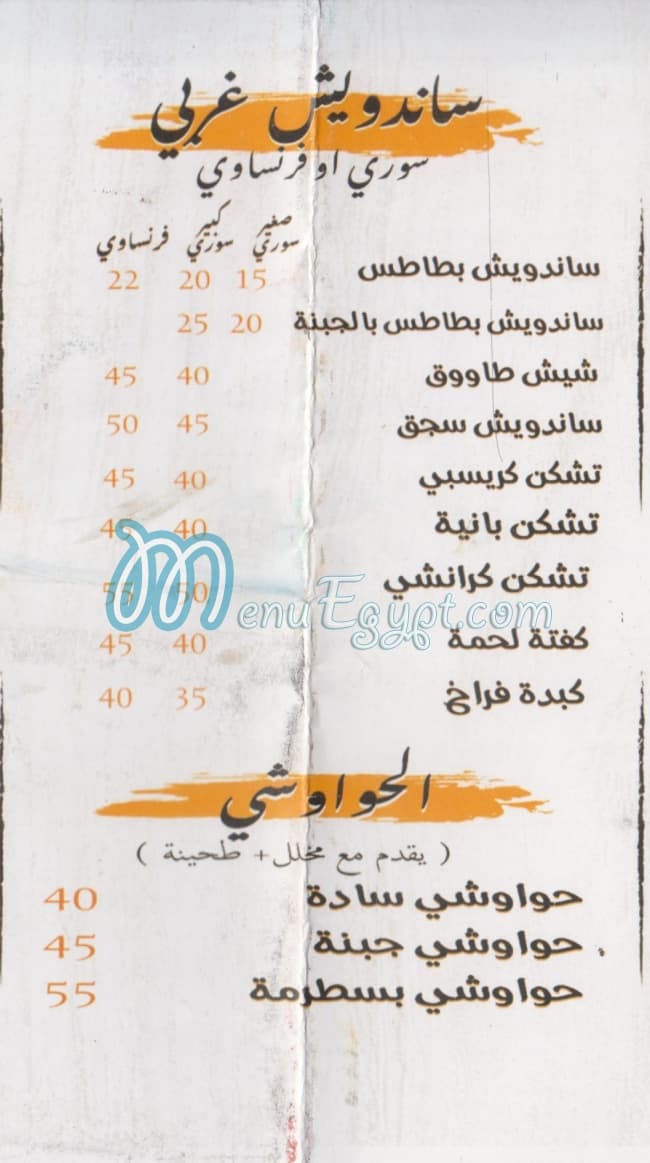 ساندويش غربي
سوري او فرنساوي
صغير سوري كبير سوري فرنساوي
ساندويش بطاطس 15 20 22
ساندويش بطاطس بالجبنة 20 25
شيش طاووق 40 45
ساندويش سجق 45 50
تشكن كريسبي 40 45
تشكن بانية 40 45
تشكن كرانشي 50 55
MenuEgypt.com
كفتة لحمة 40 45
كبدة فراخ 35 40
الحواوشي
( يقدم مع مخلل+ طحينة )
حواوشي سادة 40
حواوشي جبنة 45
حواوشي بسطرمة 55